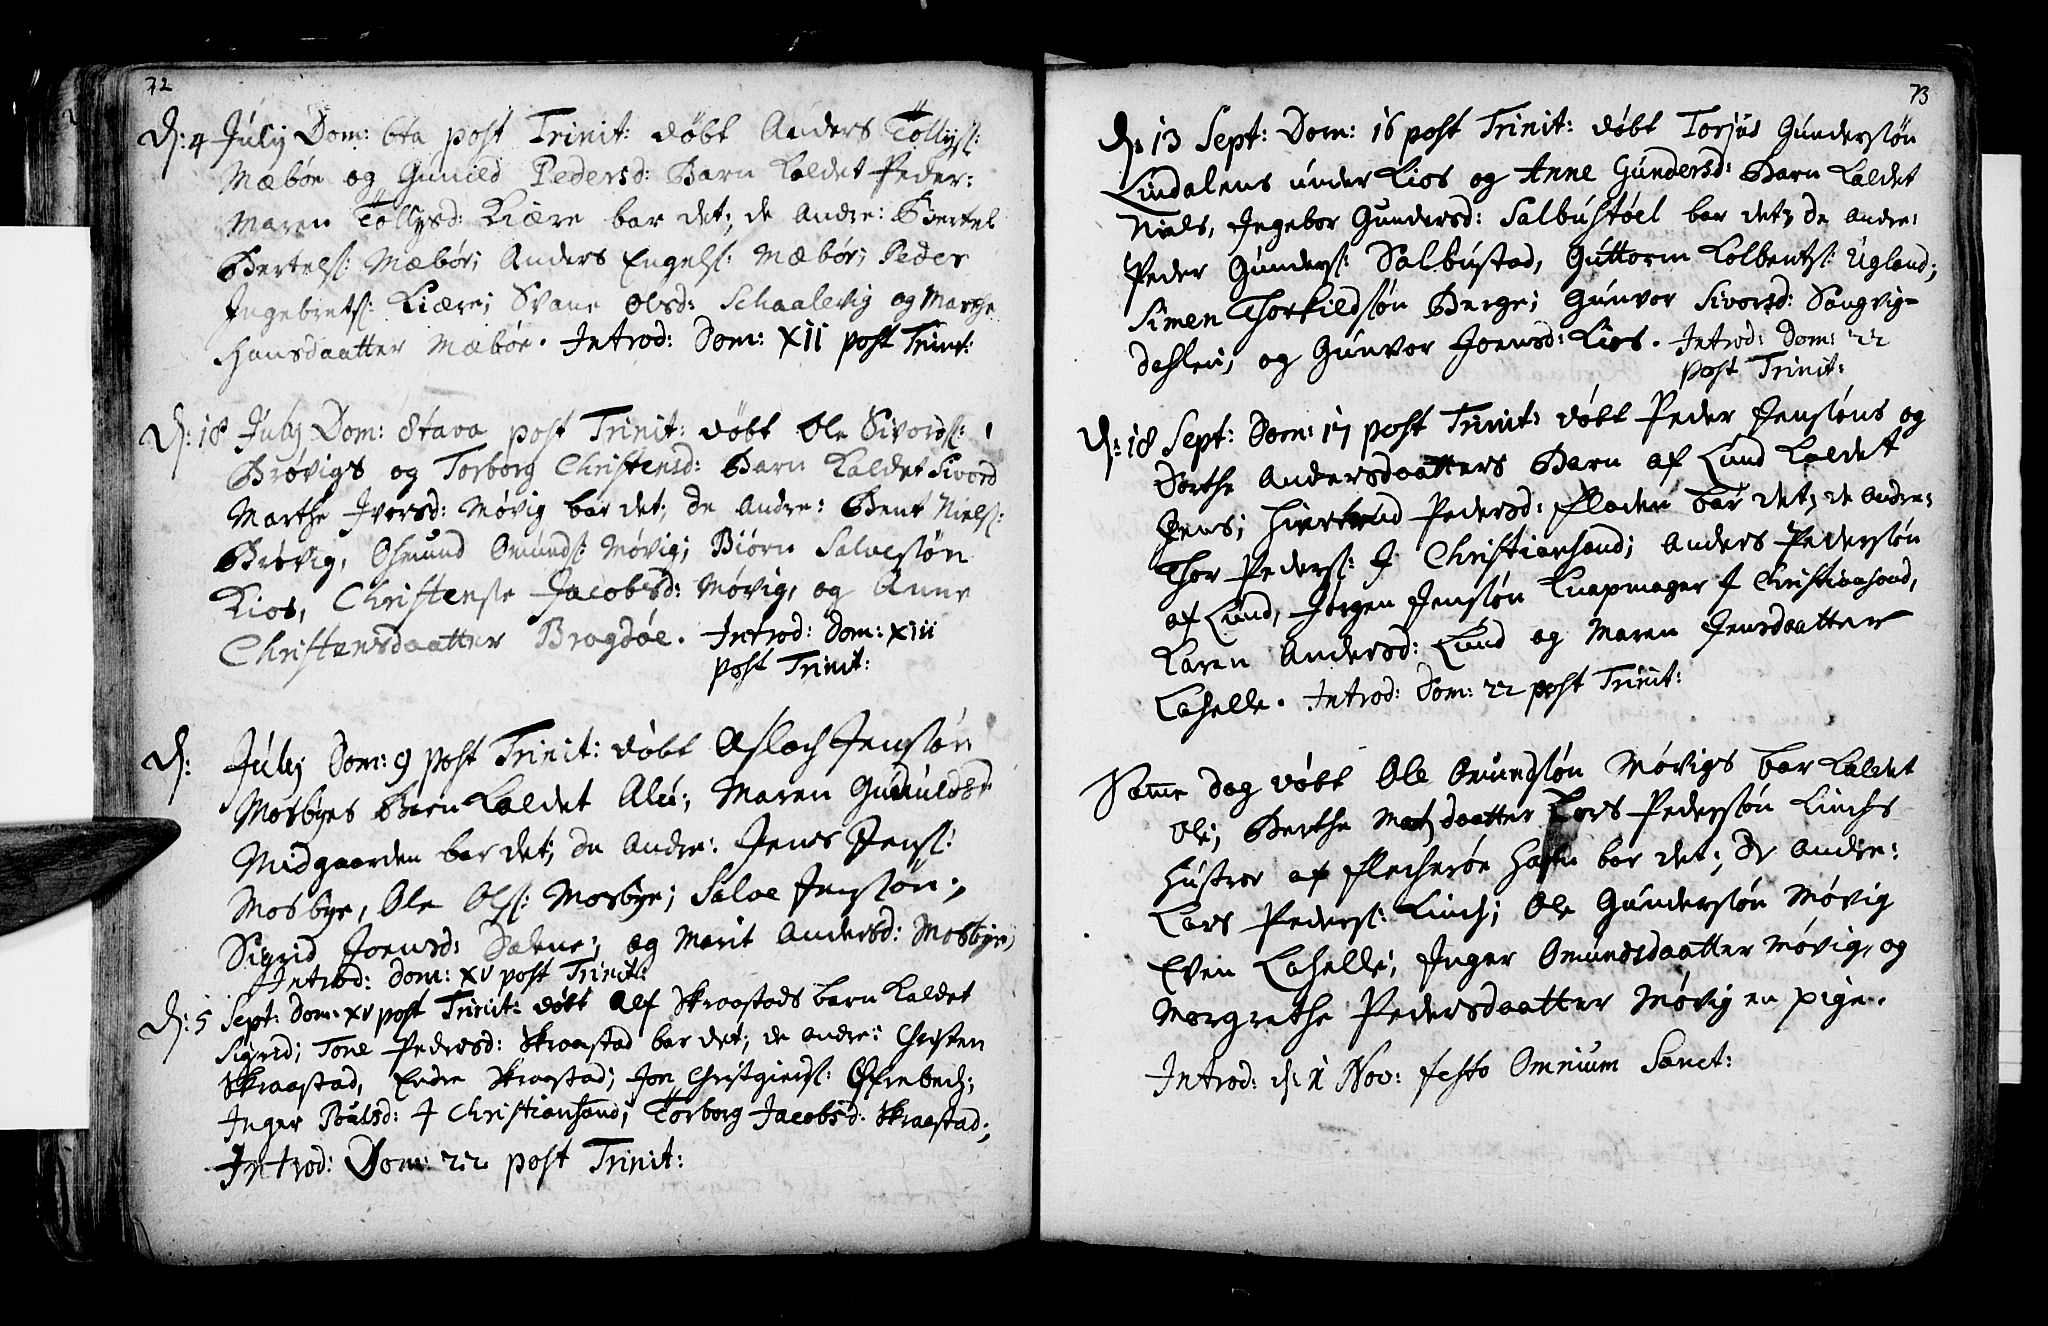 72
D: 4 July Dom: 6ta post Trinit: døbt Anders Tøllysß:
Mæbøe og Gunild Pedersd: Barn kaldet Peder:
Maren Tøllysd: Kiære bar det; de Andre: Bertel
Bertelsß: Mæbøe; Anders Engelsß: Mæbøe; Peder
Ingebretsß: Kiære; Svane Olsd: Schaalevig og Marthe
Hansdaatter Mæbøe. Introd: Dom: XII post Trinit:
D: 18 July Dom: 8tava post Trinit: døbt Ole Sivordsß:
Brøvigs og Torborg Christensd: Barn kaldet Sivord
Marthe Iversd: Møvig bar det; de Andre: Bent Nielsß:
Brøvig, Osmund Omundsß: Møvig; Biørn Salvesøn
Kios, Christense Jacobsd: Møvig, og Anne
Christensdaatter Bragdøe. Introd: Dom: XIII
post Trinit:
D: July Dom: 9 post Trinit: døbt Aslach Jensøn
Mosbyes Barn kaldet Ale; Maren Gunuldsd
Midgaarden bar det; de Andre: Jens Jensß:
Mosbye, Ole Olsß: Mosbye; Salve Jensøn;
Sigrid Joensd: Dalene; og Marit Andersd: Mosbye;
Introd: Dom: XV post Trinit:
D: 5 Sept: Dom: XV post Trinit: døbt Alf Skraastads barn kaldet
Sigrid; Tone Pedersd: Skraastad bar det; de andre: Christen
Skraastad, Endre Skraastad; Jon Christgiersß: Ofrebech;
Inger Poulsd: J Christiansand; Torborg Jacobsd: Skraastad;
Introd: Dom: 22 post Trinit:
73
D: 13 Sept: Dom: 16 post Trinit: døbt Torjus Gundersøn
Lindalens under Kios og Anne Gundersd: Barn kaldet
Niels, Ingebor Gundersd: Salbustøel bar det; de andre:
Peder Gundersß: Salbustad, Guttorm Kolbentsß: Ugland;
Simen Thorkildsøn Berge; Gunvor Sivorsd: Songvig-
dahlen; og Gunvor Joensd: Kios. Introd: Dom: 22
post Trinit:
D: 18 Sept: Dom: 17 post Trinit: døbt Peder Jensøns og
Dorthe Andersdaatters Barn af Lund kaldet
Jens; Pedersd: Fladen bar det; de Andre:
Thor Pedersß: J Christiansand; Anders Pedersøn
af Lund, Jørgen Jensøn Knapmager J Christiansand,
Karen Andersd: Lund og Maren Jensdaatter
Lahelle. Introd: Dom: 22 post Trinit:
Same Dag døbt Ole Omundsøn Møvigs bar kaldet
Ole; Berthe Madsdaatter Lars Pedersøn Linchs
Hustroe af Flecherøe Hafn bar det; de Andre:
Lars Pedersß: Linch; Ole Gundersøn Møvig
Even Lahelle; Inger Omundsdaatter Møvig, og
Margrethe Pedersdaatter Møvig en pige.
Introd: d: 1 Nov: festo Omnium Sanct: